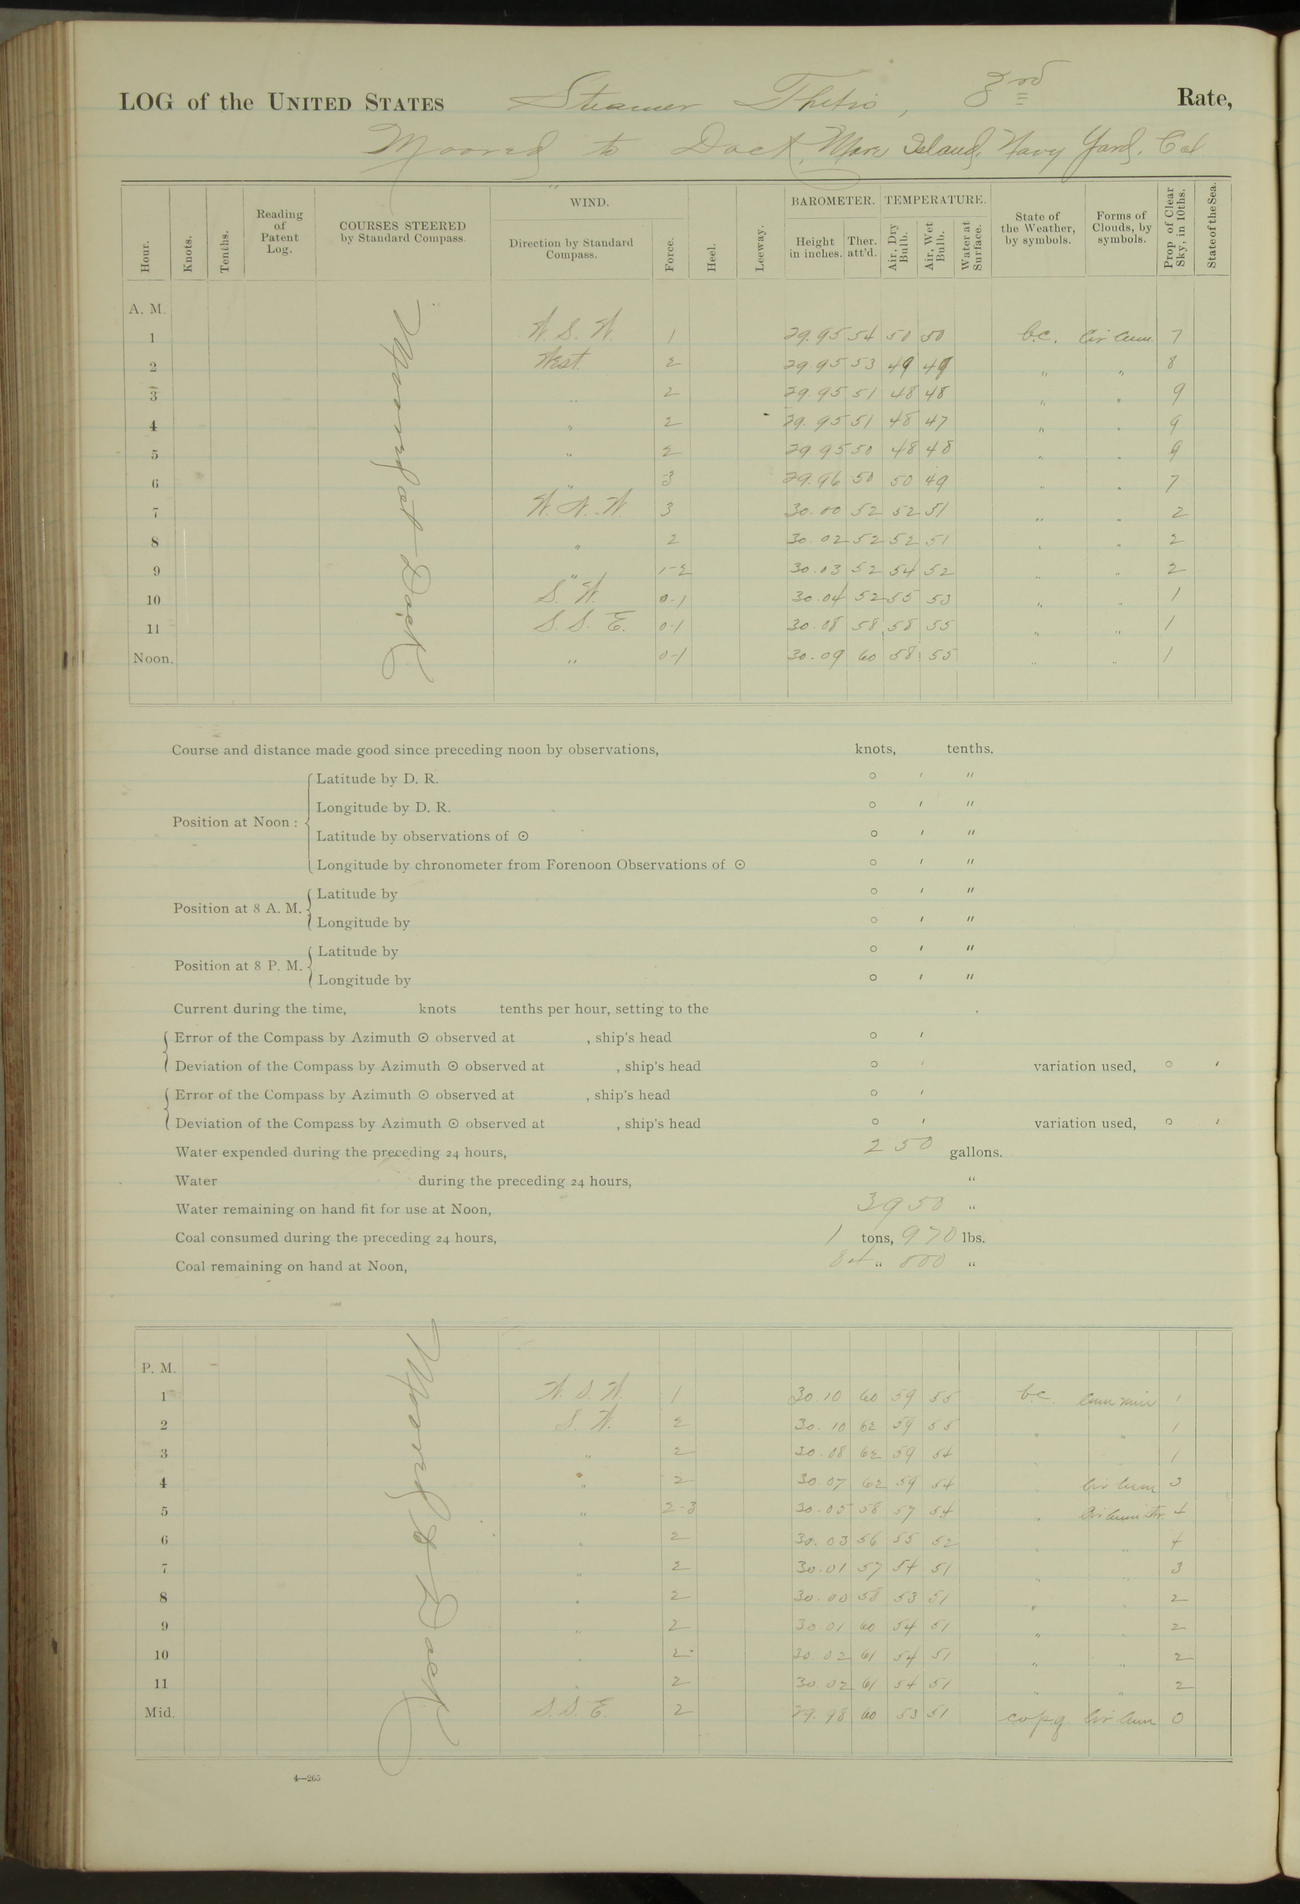 LOG of the UNITED STATES Steamer Thetis, 3rd Rate,
Moored to Dock, Mare Island, Navy Yard, Cal
Hour. Knots. Tenths. Reading of Patent Log. COURSES STEERED by Standard Compass. WIND. Direction by Standard Compass. Force. Heel. Leeway. BAROMETER. Height in inches. Ther. att'd. TEMPERATURE. Air, Dry Bulb. Air, Wet Bulb. Water at Surface. State of the Weather, by symbols. Forms of Clouds, by symbols. Prop of Clear Sky, in 10ths. State of the Sea.
A. M.
Moored at Dock
1 W. S. W. 1 29.95 54 50 50 b.c. Cir Cum 7
2 West 2 29.95 53 49 49 " " 8
3 " 2 29.95 51 48 48 " " 9
4 " 2 29.95 51 48 47 " " 9
5 " 2 29.95 50 48 48 " " 9
6 " 3 29.96 50 50 49 " " 7
7 W. N. W. 3 30.00 52 52 51 " " 2
8 " 2 30.02 52 52 51 " " 2
9 " 1-2 30.03 52 54 52 " " 2
10 S. W. 0-1 30.04 52 55 53 " " 1
11 S. S. E. 0-1 30.08 58 58 55 " " 1
Noon. " 0-1 30.09 60 58 55 " " 1
Course and distance made good since preceding noon by observations, knots, tenths.
Position at Noon :
Latitude by D. R. ° ′ ″
Longitude by D. R. ° ′ ″
Latitude by observations of ⊙ ° ′ ″
Longitude by chronometer from Forenoon Observations of ⊙ ° ′ ″
Position at 8 A. M.
Latitude by ° ′ ″
Longitude by ° ′ ″
Position at 8 P. M.
Latitude by ° ′ ″
Longitude by ° ′ ″
Current during the time, knots tenths per hour, setting to the
Error of the Compass by Azimuth ⊙ observed at , ship's head ° ′
Deviation of the Compass by Azimuth ⊙ observed at , ship's head ° ′ variation used, ° ′
Error of the Compass by Azimuth ⊙ observed at , ship's head ° ′
Deviation of the Compass by Azimuth ⊙ observed at , ship's head ° ′ variation used, ° ′
Water expended during the preceding 24 hours, 250 gallons.
Water during the preceding 24 hours, "
Water remaining on hand fit for use at Noon, 3950 "
Coal consumed during the preceding 24 hours, 1 tons, 970 lbs.
Coal remaining on hand at Noon, " 800 "
P. M.
Moored at Dock
1 W. S. W. 1 30.10 60 59 55 b.c. Cum nim 1
2 S. W. 2 30.10 62 59 55 " " 1
3 " 2 30.08 62 59 54 " 1
4 " 2 30.07 62 59 54 " Cir Cum 3
5 " 2-3 30.05 58 57 54 " Cir Cum Str. 4
6 " 2 30.03 56 55 52 " " 4
7 " 2 30.01 57 54 51 " " 3
8 " 2 30.00 58 53 51 " " 2
9 " 2 30.01 60 54 51 " " 2
10 " 2 30.02 61 54 51 " " 2
11 " 2 30.02 61 54 51 " " 2
Mid. S. S. E. 2 29.98 60 53 51 Cir Cum 0
4—265